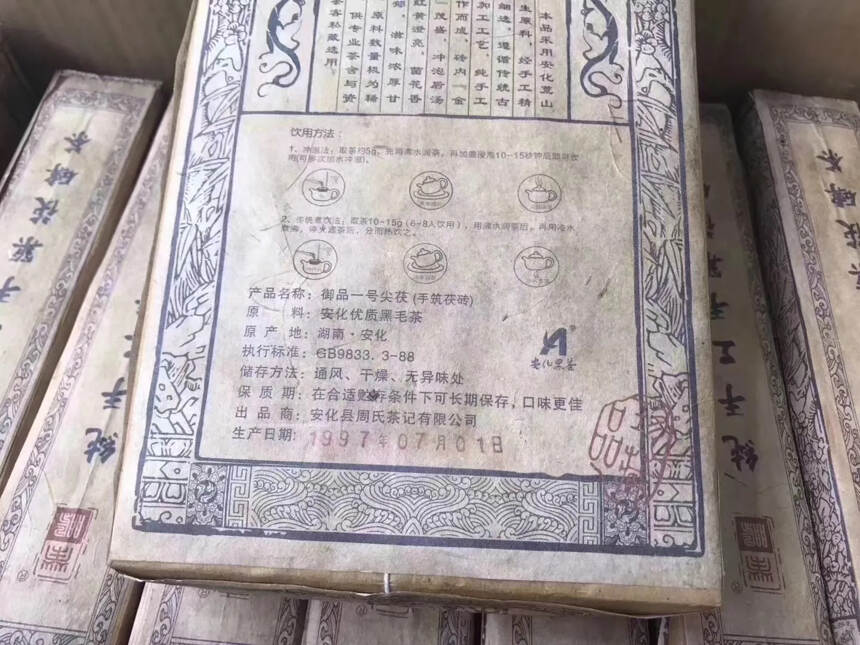 本品采用安化荒山
生原料，经手工精
细选，遵循传统古
加工工艺，纯手工
作而成，砖内“金
”茂盛，冲泡后汤
红黄澄亮，菌花香
郁，滋味浓厚甘
原料数量极为稀
供专业茶舍与资
茶客私藏选用
饮用方法：
1、冲泡法：取茶约5g，先用沸水润茶，再加盖浸泡10~15秒钟后即可饮
用(可多次加水冲泡)。
2、传统煮饮法：取茶10~15g（6~8人饮用），用沸水润茶后，再用冷水
煮沸，停火滤茶后，分而热饮之。
产品名称：御品一号尖茯(手筑茯砖)
原 料：安化优质黑毛茶
原 产 地：湖南·安化
执行标准：GB9833.3-88
储存方法：通风、干燥、无异味处
保 质 期：在合适贮存条件下可长期保存，口味更佳
出 品 商：安化县周氏茶记有限公司
生产日期：1997年07月01日
安化黑茶
纯手工茯砖茶
纯手工茯砖茶